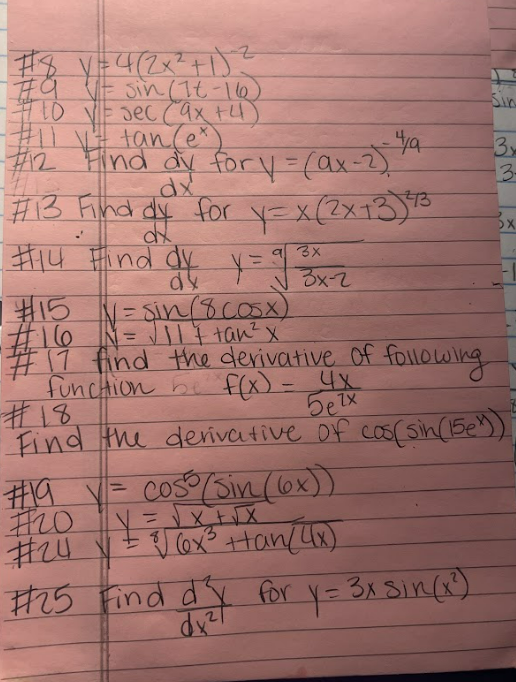 #8 y = 4(2x² + 1)⁻²
#9 y = sin(7t - 16)
#10 y = sec(9x + 4)
#11 y = tan(eˣ)
#12 Find dy/dx for y = (9x - 2)^(-4/9)
#13 Find dy/dx for y = x(2x + 3)^(2/3)
#14 Find dy/dx y = ⁹√(3x/(3x-2))
#15 y = sin(8cosx)
#16 y = √(11 + tan²x)
#17 find the derivative of following
function f(x) = 4x/(5e²ˣ)
#18
Find the derivative of cos(sin(15eˣ))
#19 y = cos⁵(sin(6x))
#20 y = √(x + √x)
#24 y = ⁸√(6x³ + tan(4x))
#25 Find d²y/dx² for y = 3x sin(x²)